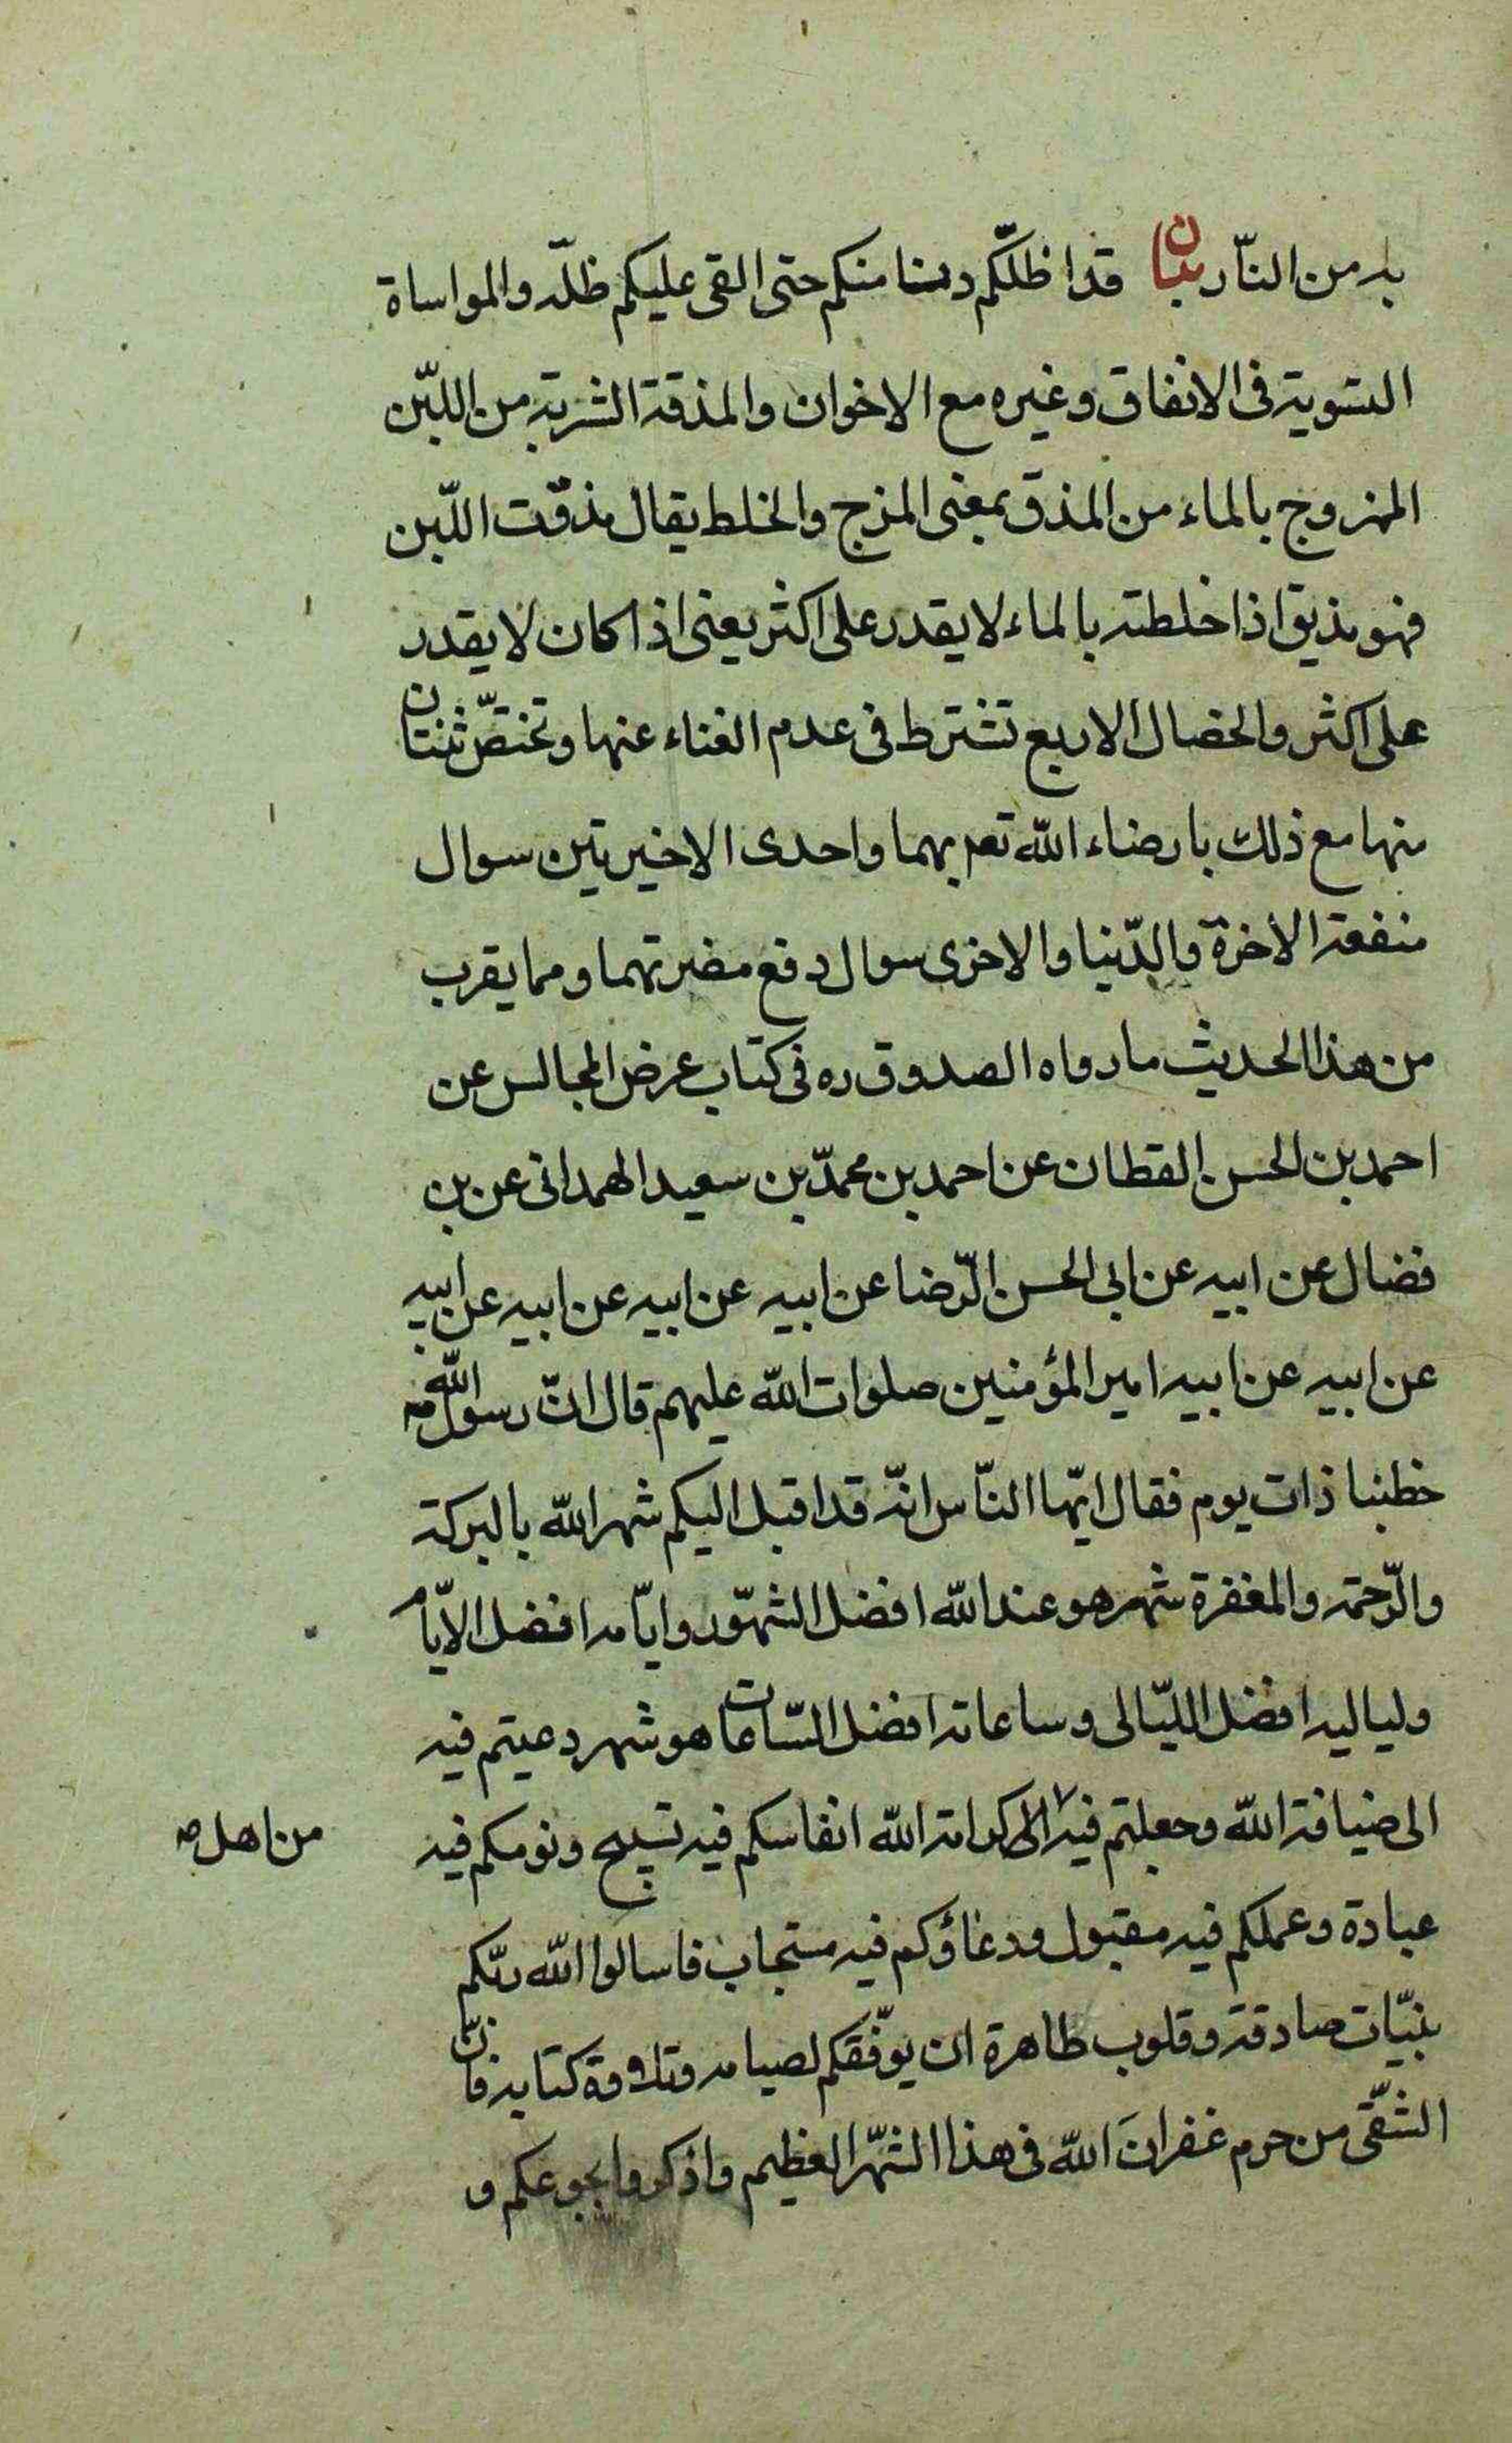 به من النّار بيان قد اظلّكم دنا منكم حتى القى عليكم ظلّه والمواساة
التسوية فى الانفاق وغيره مع الاخوان والمذقة الشربة من اللّبن
الممزوج بالماء من المذق بمعنى المزج والخلط يقال مذقت اللّبن
فهو مذيق اذا خلطته بالماء لا يقدر على اكثر يعنى اذا كان لا يقدر
على اكثر والخصال الاربع تشترط فى عدم الغناء عنها وتختصّ ثنتان
منها مع ذلك بارضاء الله تعم بهما واحدى الاخيرتين سوال
منفعة الاخرة والدّنيا والاخرى سوال دفع مضرتهما ومما يقرب
من هذا الحديث ما رواه الصدوق ره فى كتاب عرض المجالس عن
احمد بن الحسن القطان عن احمد بن محمّد بن سعيد الهمدانى عن بن
فضال عن ابيه عن ابى الحسن الرّضا عن ابيه عن ابيه عن ابيه عن ابيه
عن ابيه عن ابيه امير المؤمنين صلوات الله عليهم قال انّ رسول الله ص
خطبنا ذات يوم فقال ايّها النّاس انّه قد اقبل اليكم شهر الله بالبركة
والرّحمة والمغفرة شهر هو عند الله افضل الشهّور وايّامه افضل الايّام
ولياليه افضل اللّيالى وساعاته افضل السّاعات هو شهر دعيتم فيه
الى ضيافة الله وجعلتم فيه الى كرامة الله انفاسكم فيه تسبيح ونومكم فيه
من اهل ص
عبادة وعملكم فيه مقبول ودعاؤكم فيه مستجاب فاسالوا الله ربّكم
بنيّات صادقة وقلوب طاهرة ان يوّفقكم لصيامه وتلاوة كتابه فانّ
الشّقى من حرم غفران الله فى هذا الشّهر العظيم واذكروا بجوعكم و